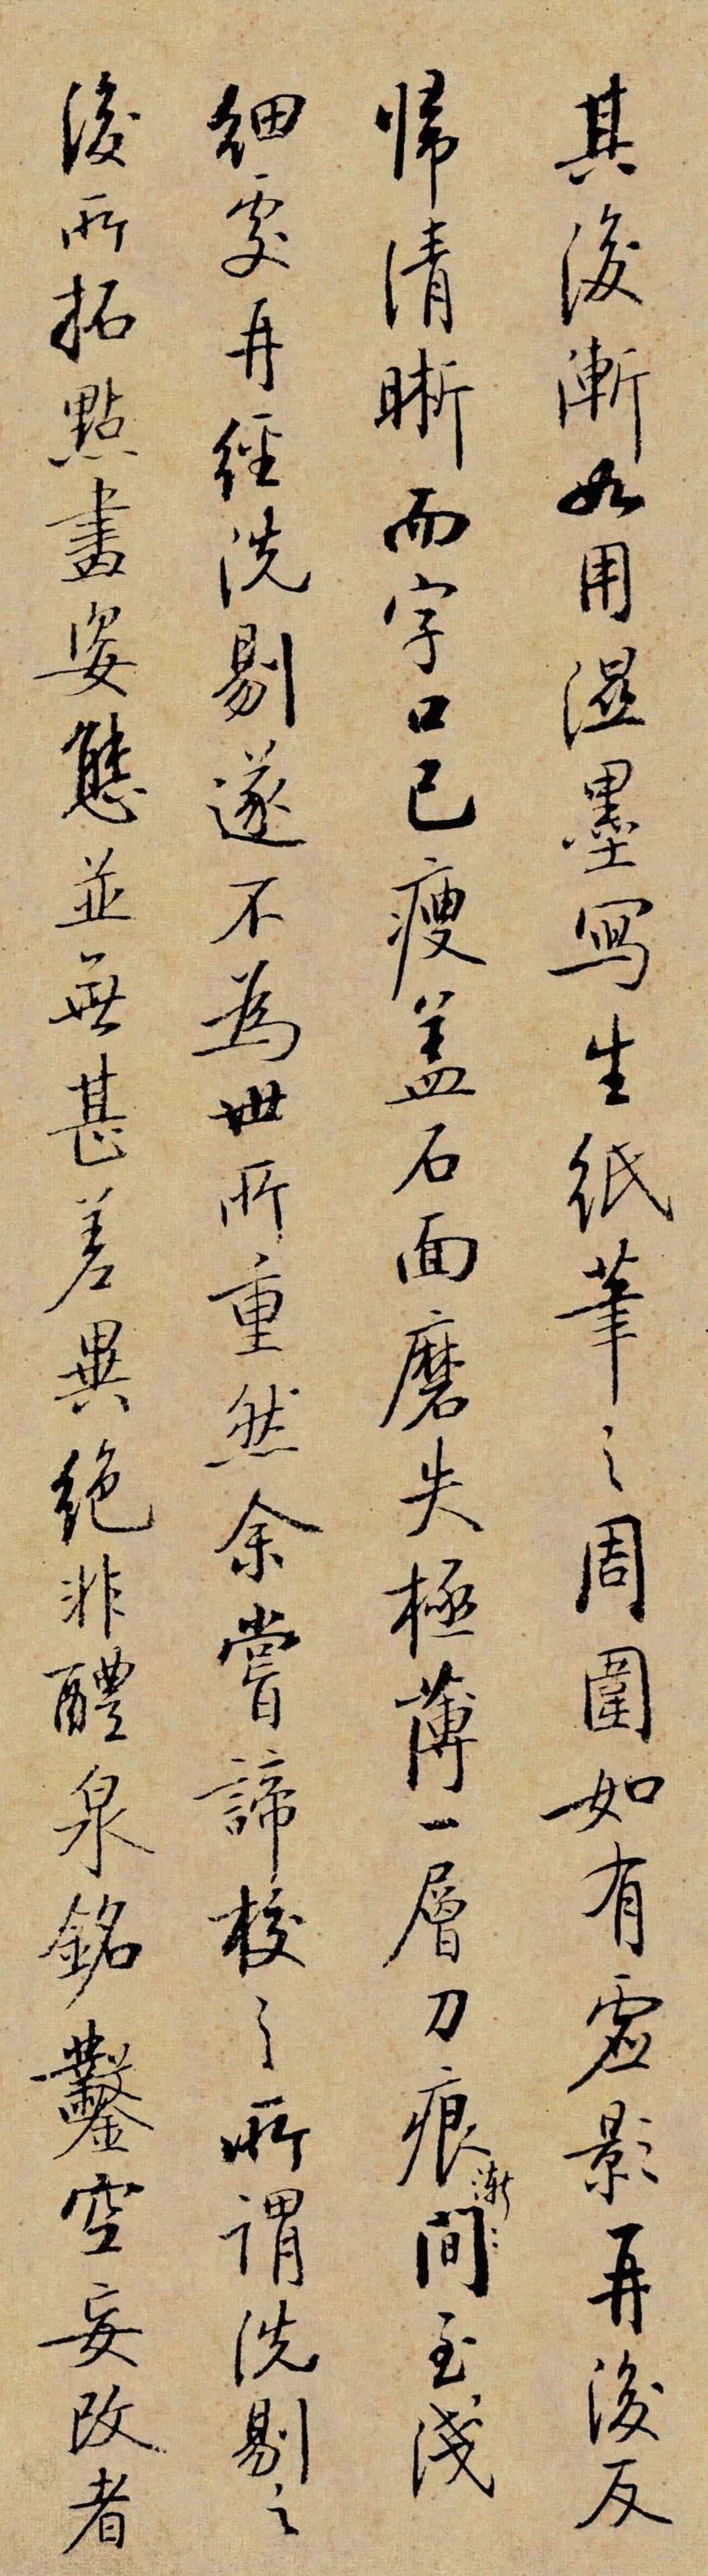 其後漸如用濕墨寫生紙筆之周圍如有虛影再後反
歸清晰而字口已瘦蓋石面磨失極薄一層刀痕漸〻間至淺
細處再經洗剔遂不為世所重然余嘗諦校之所謂洗剔之
後所拓點畫姿態並無甚差異絕非醴泉銘鑿空妄改者